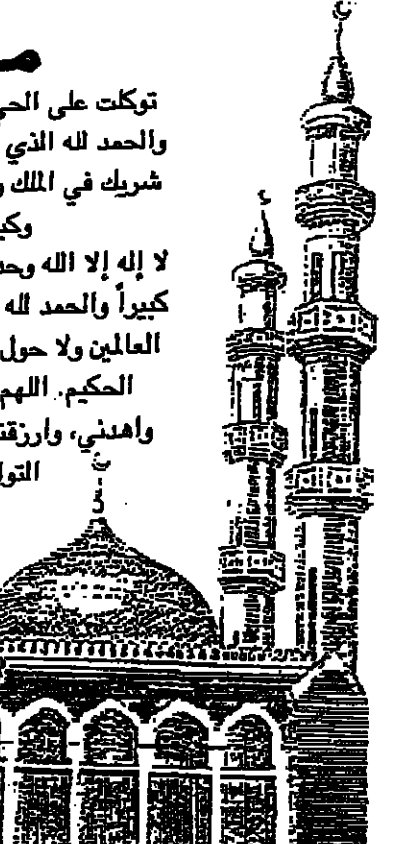 توكلت على الحي
والحمد لله الذي
شريك في الملك و
وكبر
لا إله إلا الله وحد
كبيراً والحمد لله
العالمين ولا حول
الحكيم. اللهم
واهدني، وارزقني
التوا